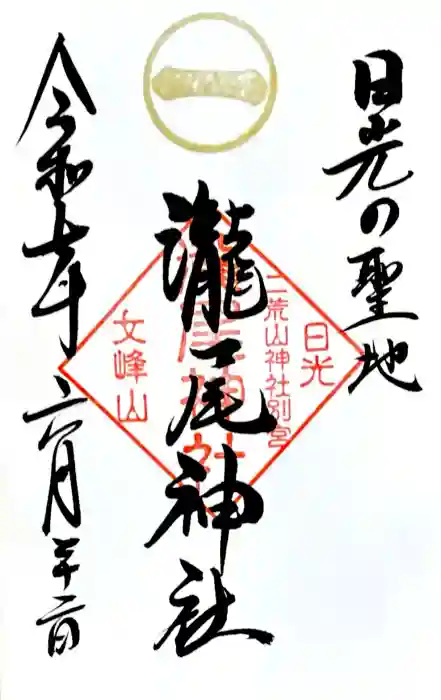 日光の聖地
瀧尾神社
令和七年六月二十二日
日光
二荒山神社別宮
瀧尾神社
文峰山